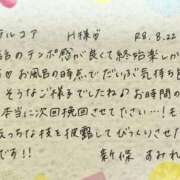 ルコア H様♂ R8.8.22
のテンポ感が良くて終始楽しか
お風呂の時点でだいぶ気持ち
そうなご様子でしたね♪お時間の
本当に次回挽回させてださい…!モ
っちな技を披露してびっくりさせた
です!! 新條 すみれ